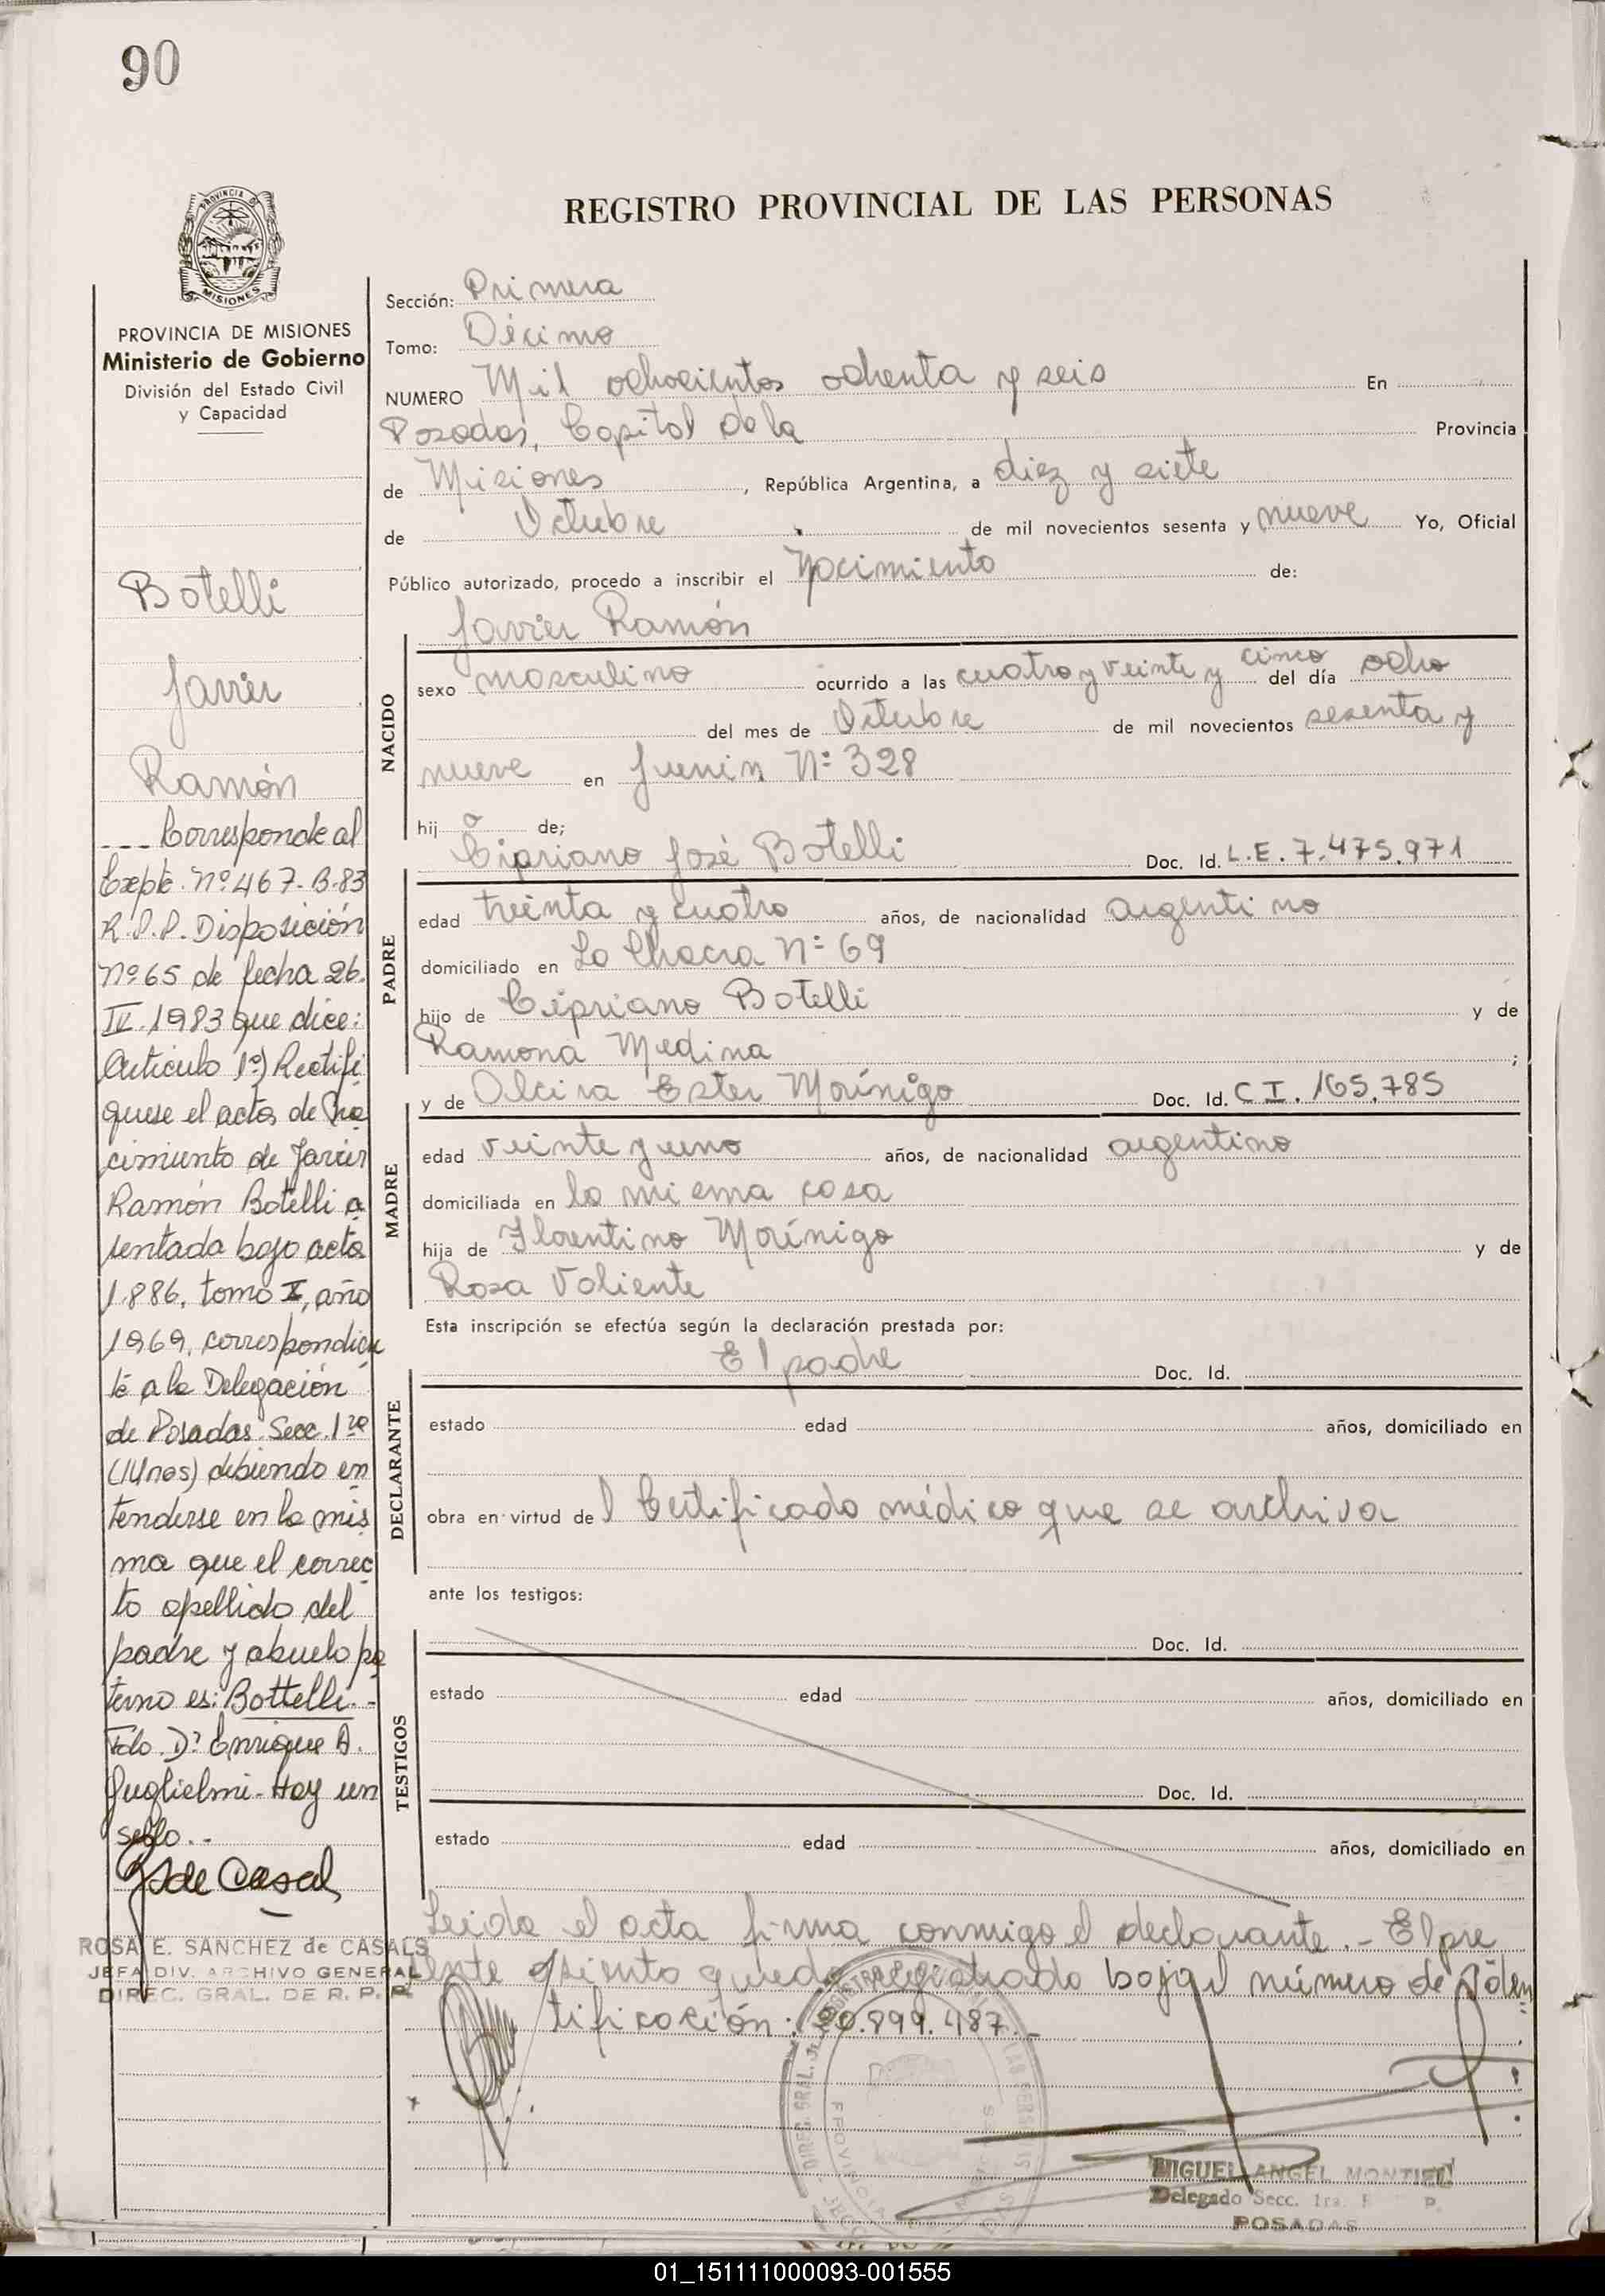 90
REGISTRO PROVINCIAL DE LAS PERSONAS
PROVINCIA DE MISIONES
PROVINCIA DE MISIONES
Ministerio de Gobierno
División del Estado Civil
y Capacidad
Botelli
Javier
Ramón
--- Corresponde al
Expte. Nº 467-B-83
R.P.P. Disposición
Nº 65 de fecha 26.
IV.1983 que dice:
Artículo 1º) Rectifi
quese el acta de Na
cimiento de Javier
Ramón Botelli a
sentada bajo acta
1.886, tomo X, año
1969, correspondien
te a la Delegación
de Posadas Secc. 1ra
(Mnes) debiendo en
tenderse en la mis
ma que el correc
to apellido del
padre y abuelo pa
terno es: Bottelli.-
Fdo. Dr. Enrique A.
Guglielmi- Hay un
sello.-
ROSA E. SANCHEZ de CASALS
JEFA DIV. ARCHIVO GENERAL
DIREC. GRAL. DE R. P. P.
Sección: Primera
Tomo: Décimo
NUMERO Mil ochocientos ochenta y seis En
Posadas, Capital de la Provincia
de Misiones, República Argentina, a diez y siete
de Octubre de mil novecientos sesenta y nueve Yo, Oficial
Público autorizado, procedo a inscribir el Nacimiento de:
Javier Ramón
NACIDO
sexo masculino ocurrido a las cuatro y veinte y cinco del día ocho
del mes de Octubre de mil novecientos sesenta y
nueve en Junin Nº 328
hijo de;
Cipriano José Botelli Doc. Id. L.E. 7.475.971
PADRE
edad treinta y cuatro años, de nacionalidad argentino
domiciliado en La Chacra Nº 69
hijo de Cipriano Botelli y de
Ramona Medina ;
y de Alcira Ester Morínigo Doc. Id. C I. 165.785
MADRE
edad veinte y uno años, de nacionalidad argentina
domiciliada en la misma casa
hija de Florentino Morínigo y de
Rosa Valiente
Esta inscripción se efectúa según la declaración prestada por:
El padre Doc. Id.
DECLARANTE
estado edad años, domiciliado en
obra en virtud del Certificado médico que se archiva
ante los testigos:
Doc. Id.
TESTIGOS
estado edad años, domiciliado en
Doc. Id.
estado edad años, domiciliado en
Leida el acta firma conmigo el declarante.- El pre
sente asiento queda registrado bajo el número de Iden
tificación: 20.899.487.-
MIGUEL ANGEL MONTIEL
Delegado Secc. 1ra. P.
POSADAS
01_151111000093-001555